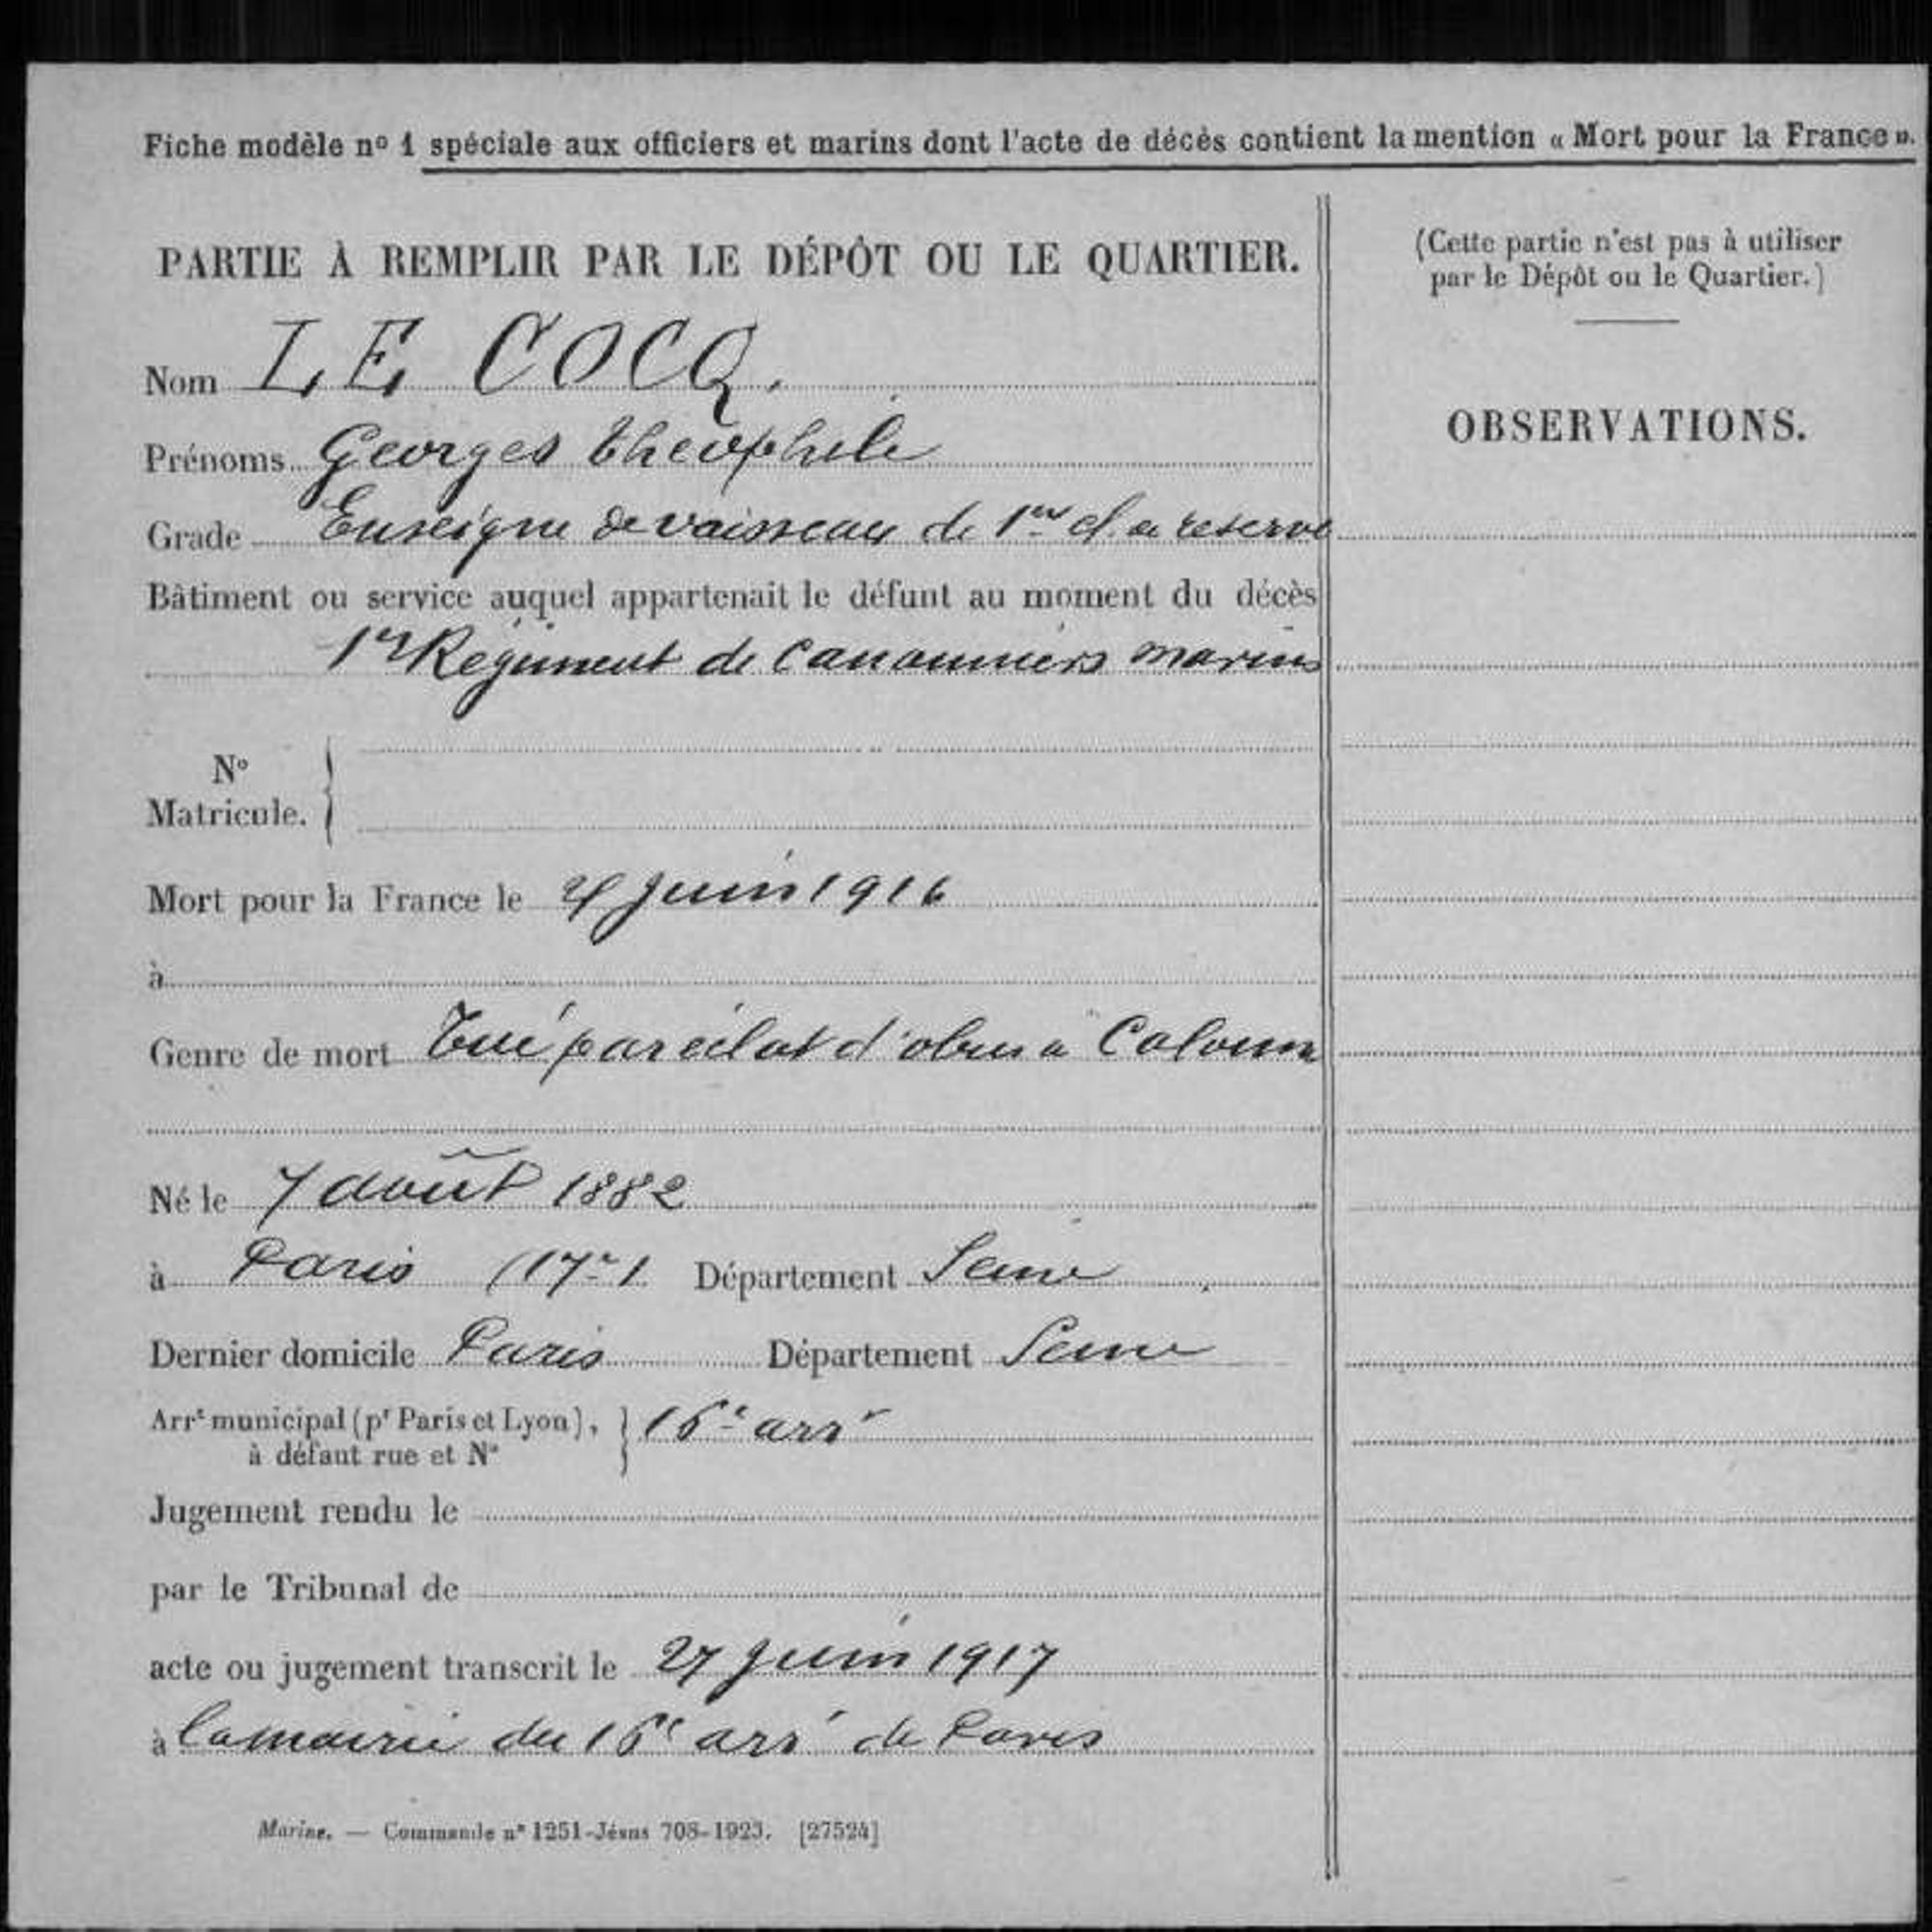 Fiche modèle nº 1 spéciale aux officiers et marins dont l'acte de décès contient la mention « Mort pour la France ».
PARTIE À REMPLIR PAR LE DÉPÔT OU LE QUARTIER.
Nom LE COCQ.
Prénoms Georges Théophile
Grade Enseigne de vaisseau de 1re cl. de réserve
Bâtiment ou service auquel appartenait le défunt au moment du décès
1er Régiment de Canonniers marins
Nº
Matricule.
Mort pour la France le juin 1916
à
Genre de mort Tué par éclat d'obus à
Né le 7 août 1882
à Paris (17e). Département Seine
Dernier domicile Paris Département Seine
Arrt municipal (pr Paris et Lyon), 16e arrt
à défaut rue et Nº
Jugement rendu le
par le Tribunal de
acte ou jugement transcrit le 27 juin 1917
à la mairie du 16e arrt de Paris
Marine. — Commande nº 1251-Jésus 708-1923. [27524]
(Cette partie n'est pas à utiliser
par le Dépôt ou le Quartier.)
OBSERVATIONS.